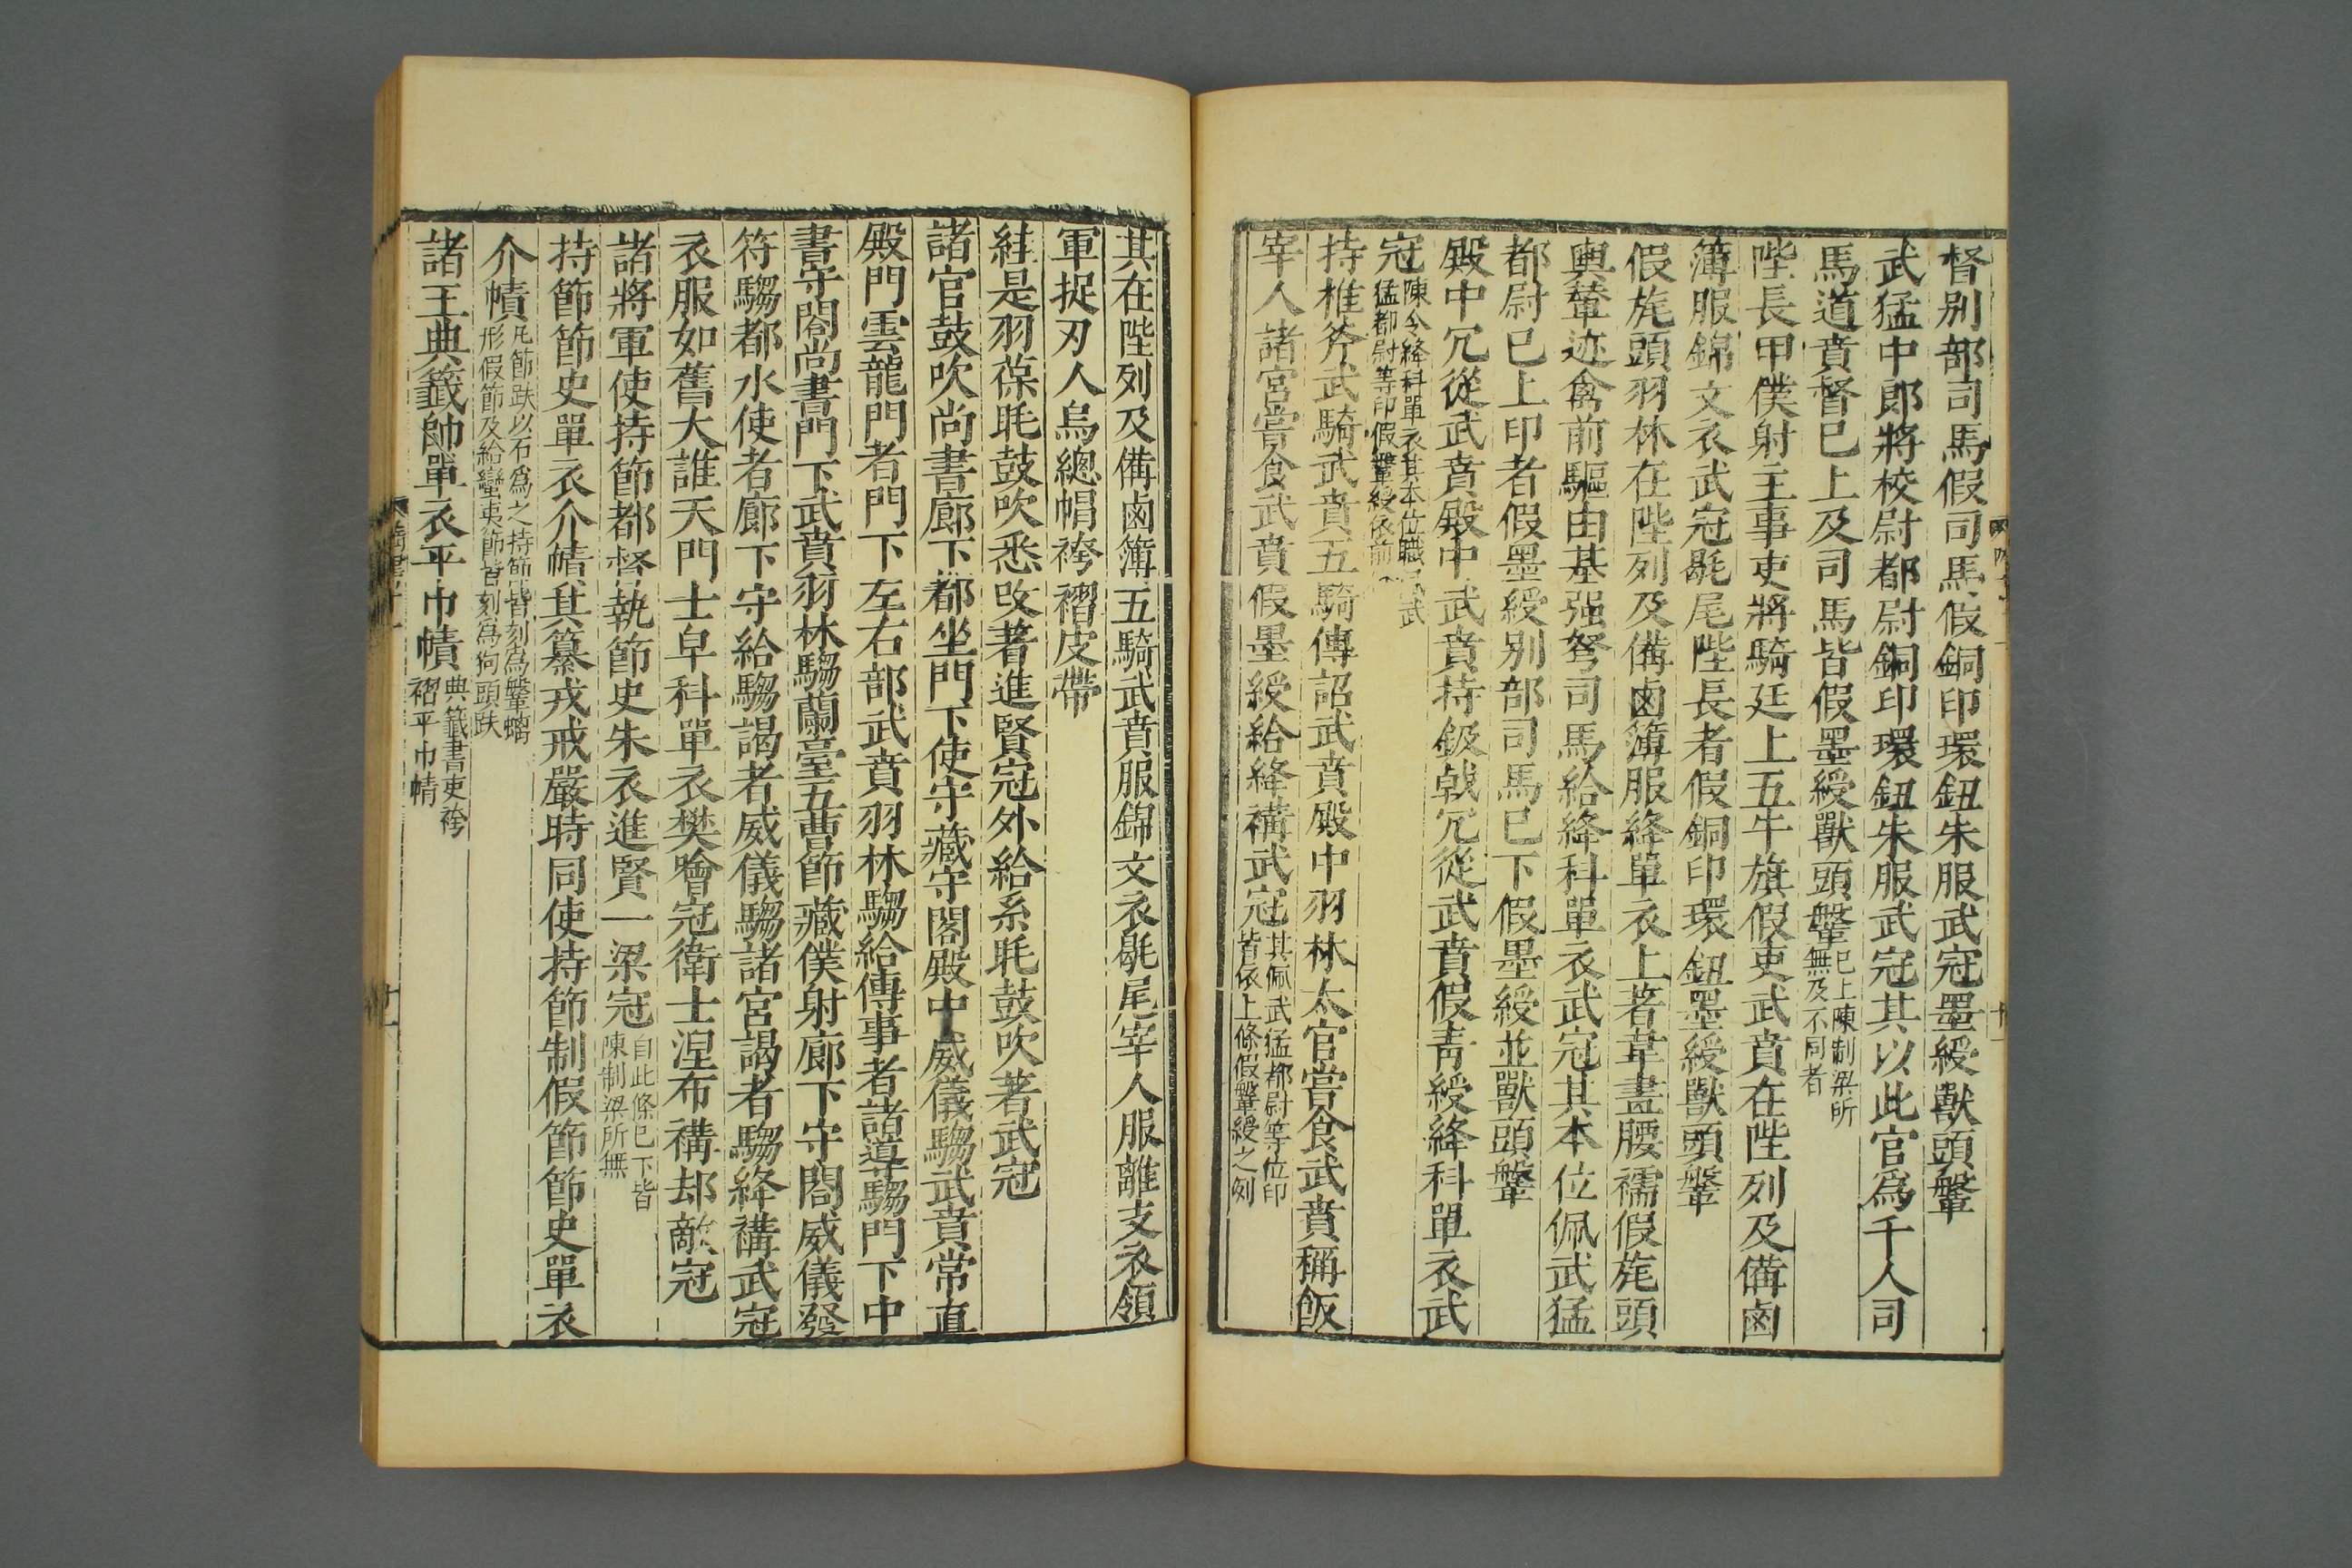 督別部司馬假司馬假銅印環鈕朱服武冠墨綬獸頭鞶
武猛中郎將校尉都尉銅印環鈕朱服武冠其以此官爲千人司
馬道賁督已上及司馬皆假墨綬獸頭鞶已上陳制梁所無及不同者
陛長甲僕射主事吏將騎廷上五牛旗假吏武賁在陛列及備鹵
簿服錦文衣武冠毼尾陛長者假銅印環鈕墨綬獸頭鞶
假旄頭羽林在陛列及備鹵簿服絳單衣上著韋畫腰襦假旄頭
輿輦迹禽前驅由基强弩司馬給絳科單衣武冠其本位佩武猛
都尉已上印者假墨綬别部司馬已下假墨綬並獸頭鞶
殿中冗從武賁殿中武賁持鈒戟冗從武賁假青綬絳科單衣武
冠陳令絳科單衣其本位職武猛都尉等印假鞶綬依前
持椎斧武騎武賁五騎傳詔武賁殿中羽林太官嘗食武賁稱飯
宰人諸宮嘗食武賁假墨綬給絳褠武冠其佩武猛都尉等位印皆依上條假鞶綬之例
其在陛列及備鹵簿五騎武賁服錦文衣毼尾宰人服離支衣領
軍捉刃人烏總帽袴褶皮帶
絓是羽葆毦鼓吹悉改著進賢冠外給系毦鼓吹著武冠
諸官鼓吹尚書廊下都坐門下使守藏守閣殿中威儀騶武賁常直
殿門雲龍門者門下左右部武賁羽林騶給傳事者諸導騶門下中
書守閤尚書門下武賁羽林騶蘭臺五曹節藏僕射廊下守閤威儀發
符騶都水使者廊下守給騶謁者威儀騶諸宮謁者騶絳褠武冠
衣服如舊大誰天門士皁科單衣樊噲冠衛士涅布褠却敵冠
諸將軍使持節都督執節史朱衣進賢一梁冠自此條已下皆陳制梁所無
持節節史單衣介幘其纂戎戒嚴時同使持節制假節節史單衣
介幘凡節趺以石爲之持節皆刻爲鞶螭形假節及給蠻夷節皆刻爲狗頭趺
諸王典籤帥單衣平巾幘典籤書吏袴褶平巾幘